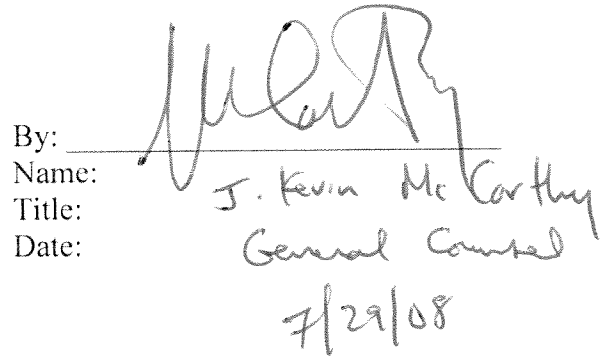 By: McCarthy
Name: J. Kevin McCarthy
Title: General Counsel
Date: 7/29/08